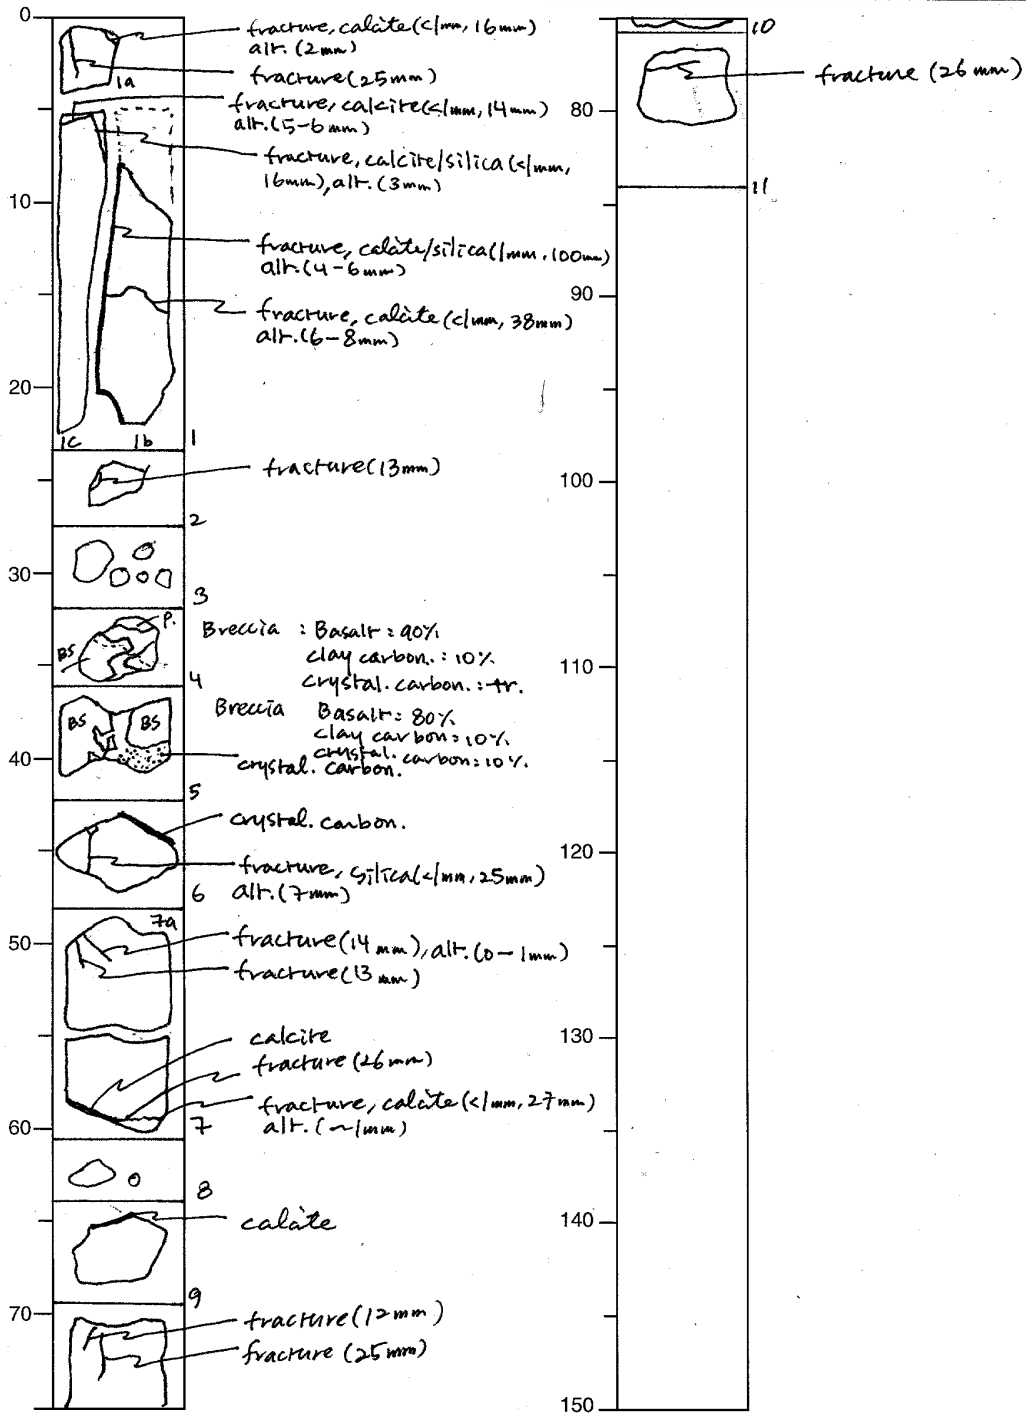 0
fracture, calcite (<1mm, 16mm)
alt. (2mm)
fracture (25mm)
1a
fracture, calcite (<1mm, 14mm)
alt. (5-6mm)
fracture, calcite/silica (<1mm,
16mm), alt. (3mm)
10
fracture, calcite/silica (1mm, 100mm)
alt. (4-6mm)
fracture, calcite (<1mm, 38mm)
alt. (6-8mm)
20
1c
1b
1
fracture (13mm)
2
30
3
P.
BS
Breccia : Basalt : 90%
clay carbon. : 10%
crystal. carbon. : tr.
4
BS
BS
Breccia Basalt : 80%
clay carbon : 10%
crystal. carbon : 10%
40
crystal. carbon.
5
crystal. carbon.
fracture, silica (<1mm, 25mm)
alt. (7mm)
6
7a
50
fracture (14mm), alt. (0-1mm)
fracture (13mm)
calcite
fracture (26mm)
fracture, calcite (<1mm, 27mm)
alt. (~1mm)
60
7
8
calcite
9
70
fracture (12mm)
fracture (25mm)
10
fracture (26mm)
80
11
90
100
110
120
130
140
150